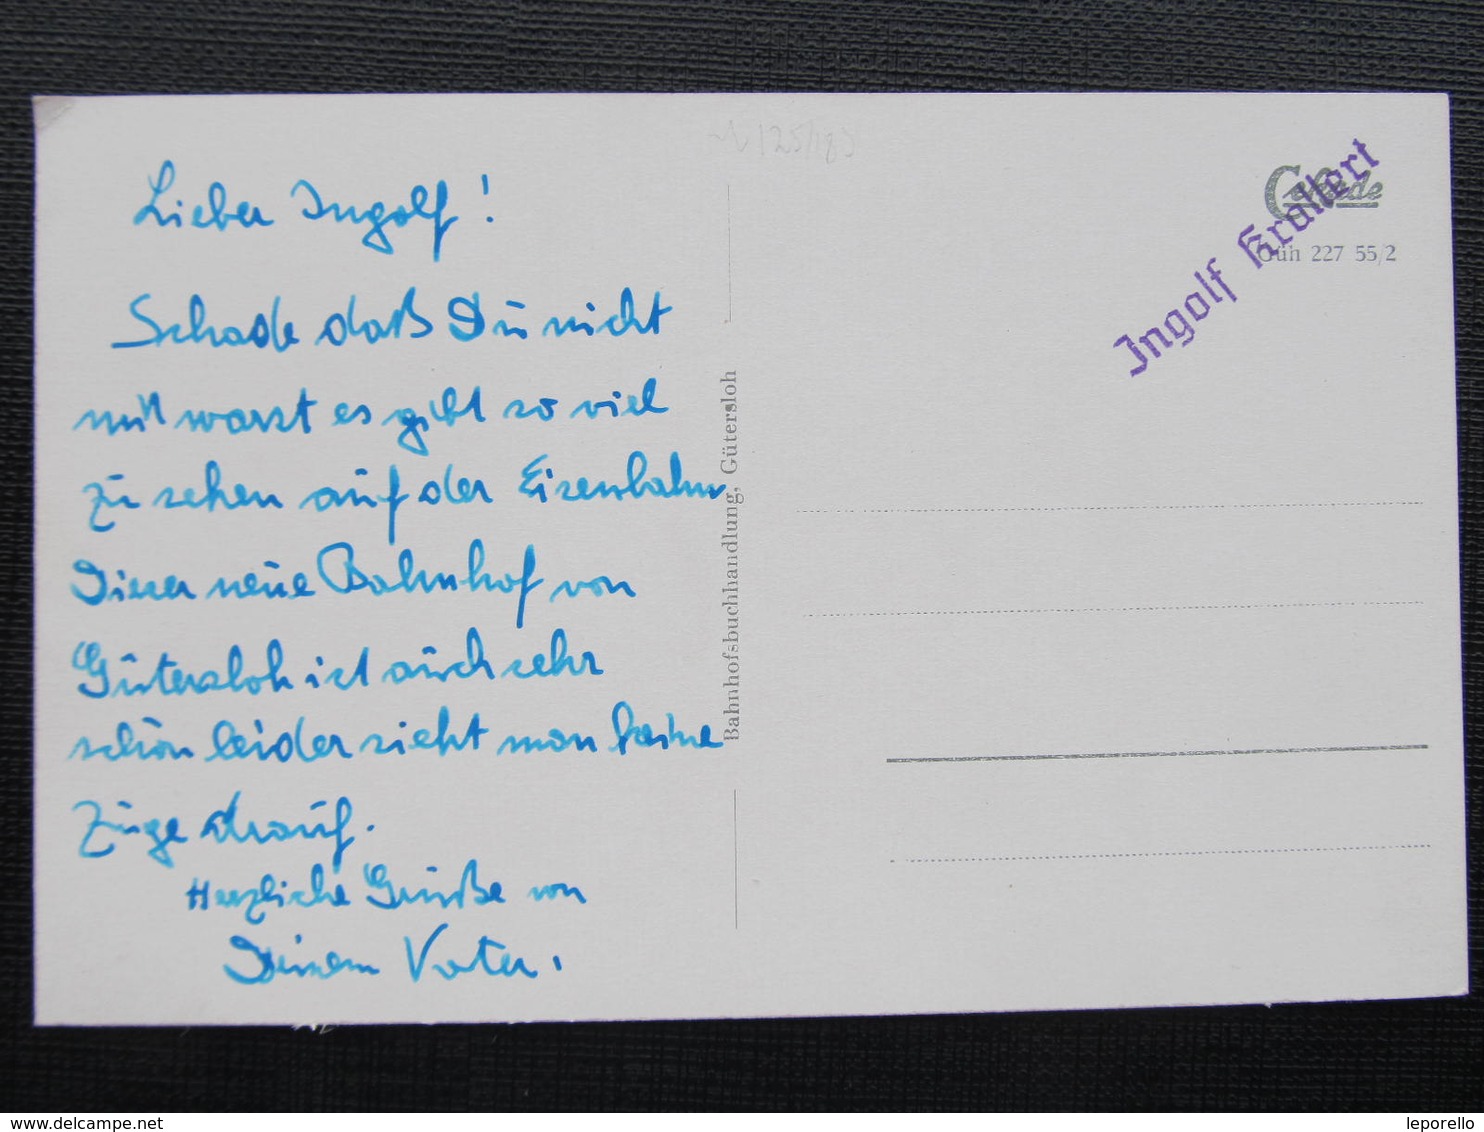 Lieber Ingolf!
Schade daß Du nicht
mit warst es gibt so viel
zu sehen auf der Eisenbahn
Dieser neue Bahnhof von
Gütersloh ist auch sehr
schön leider sieht man keine
Züge drauf.
Herzliche Grüße von
Deinem Vater.
Bahnhofsbuchhandlung, Gütersloh
Cekade
Güh 227 55/2
Ingolf Krallert
delcampe.net
leporello